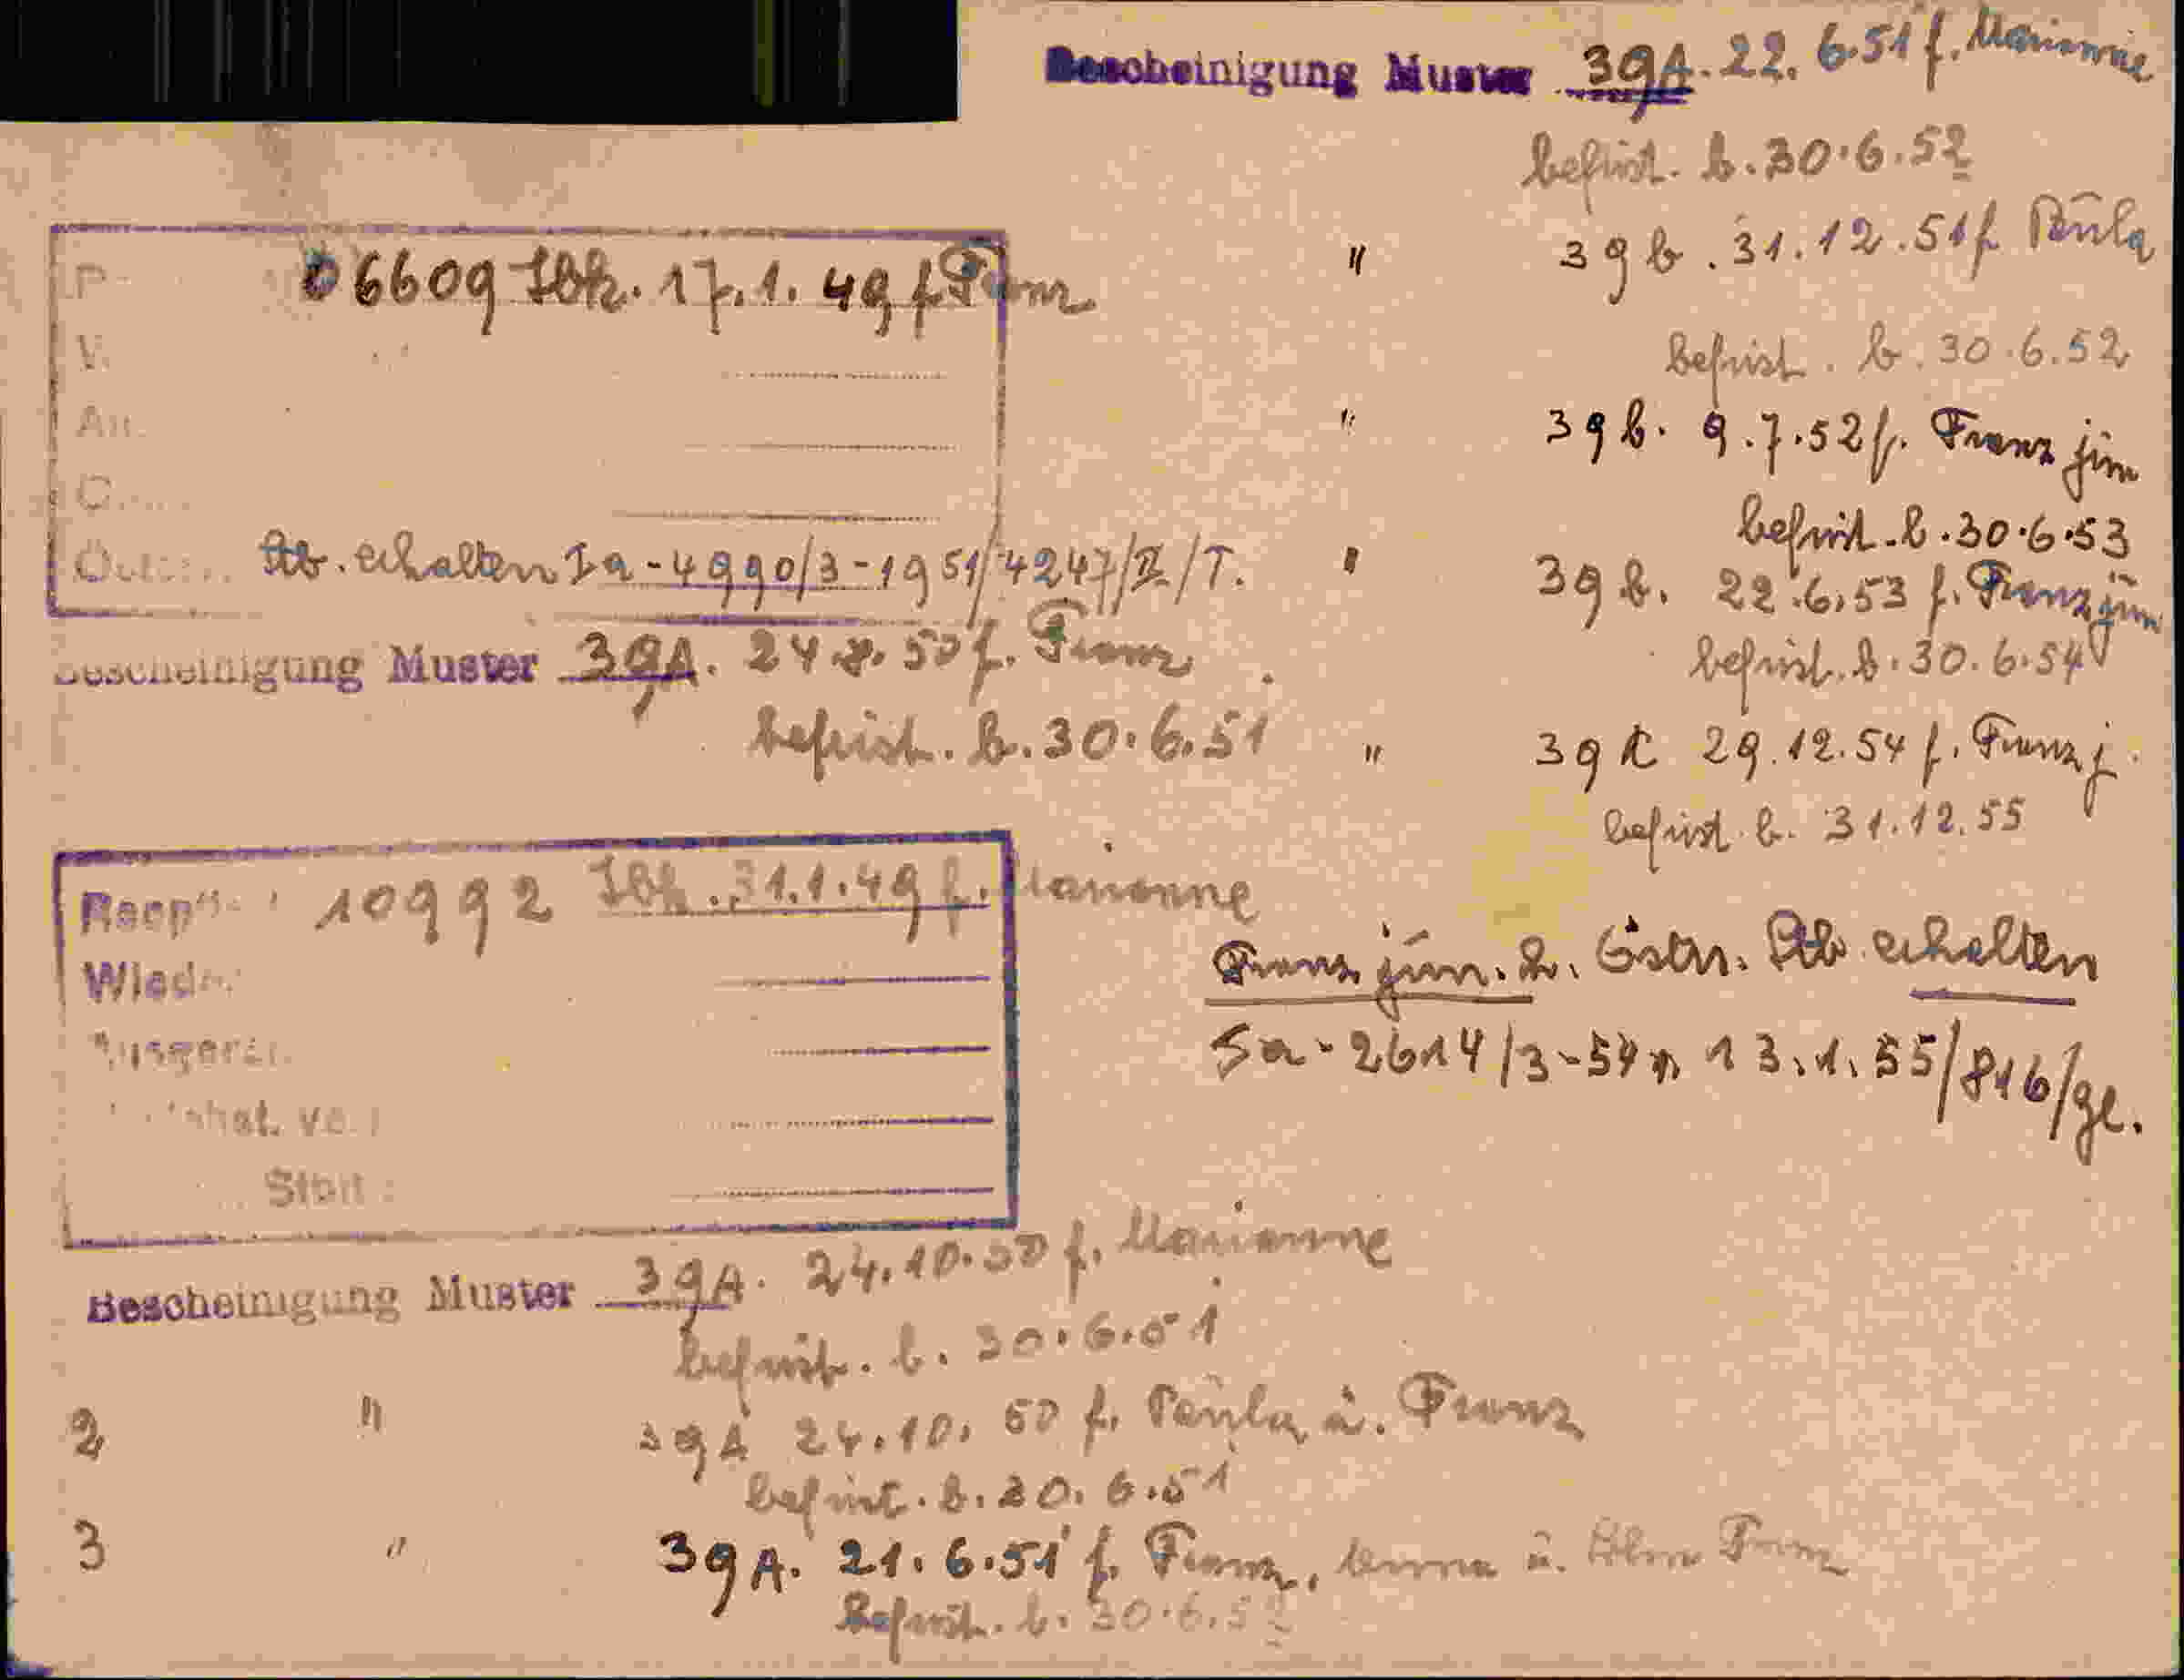 Bescheinigung Muster 39A. 22. 6.51 f. Marianne
befrist. b. 30.6.52
" 39b. 31.12.51 f. Paula
befrist. b. 30.6.52
" 39b. 9.7.52 f. Franz jun
befrist. b. 30.6.53
" 39b. 22.6.53 f. Franz jun
befrist. b. 30.6.54
" 39 29.12.54 f. Franz j.
befrist. b. 31.12.55
Franz jun. d. Östr. Stb erhalten
Ia-2614/3-54 13.1.55/816/gl.
06609 Ibk. 17.1.49 f. Franz
V.
An.
Stb. erhalten Ia-4990/3-1951/4247/II/T.
Bescheinigung Muster 39A. 24. 50 f. Franz
befrist. b. 30.6.51
10992 Ibk. 31.1.49 f. Marianne
Bescheinigung Muster 39A. 24.10.50 f. Marianne
befrist. b. 30.6.51
2 " 39A 24.10.50 f. Paula u. Franz
befrist. b. 30.6.51
3 " 39A. 21.6.51 f. Franz, u. Franz
befrist. b. 30.6.52